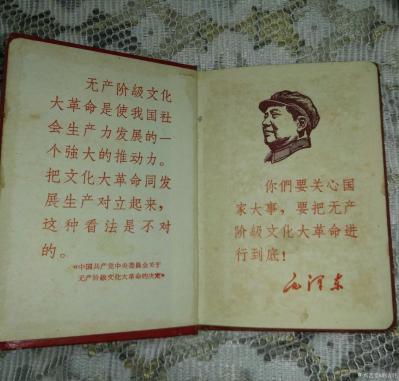 无产阶級文化
大革命是使我国社
会生产力发展的一
个強大的推动力。
把文化大革命同发
展生产对立起来，
这种看法是不对
的。
«中国共产党中央委員会关于
无产阶級文化大革命的决定»
你們要关心国
家大事，要把无产
阶級文化大革命进
行到底！
毛泽东